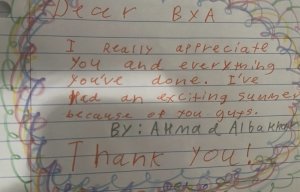 Dear BxA
I Really appreciate
You and everything
You've done. I've
Had an exciting summer
because of you guys.
BY: AHmad Albakhar
Thank you!